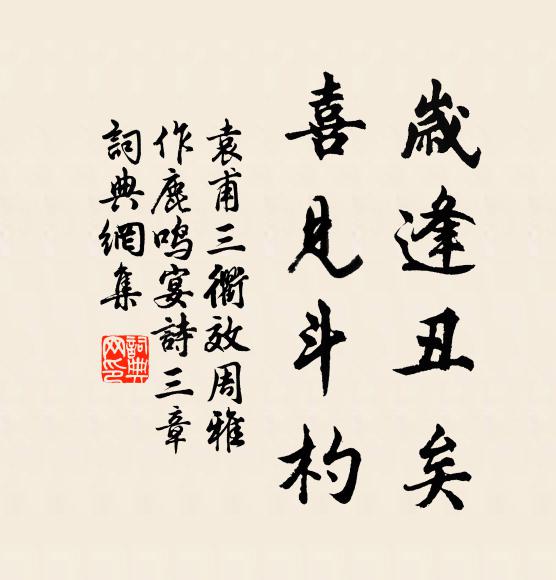 歲逢丑矣
喜見斗杓
袁甫三衢效周雅
作鹿鳴宴詩三章
詞典網集
詞典網印